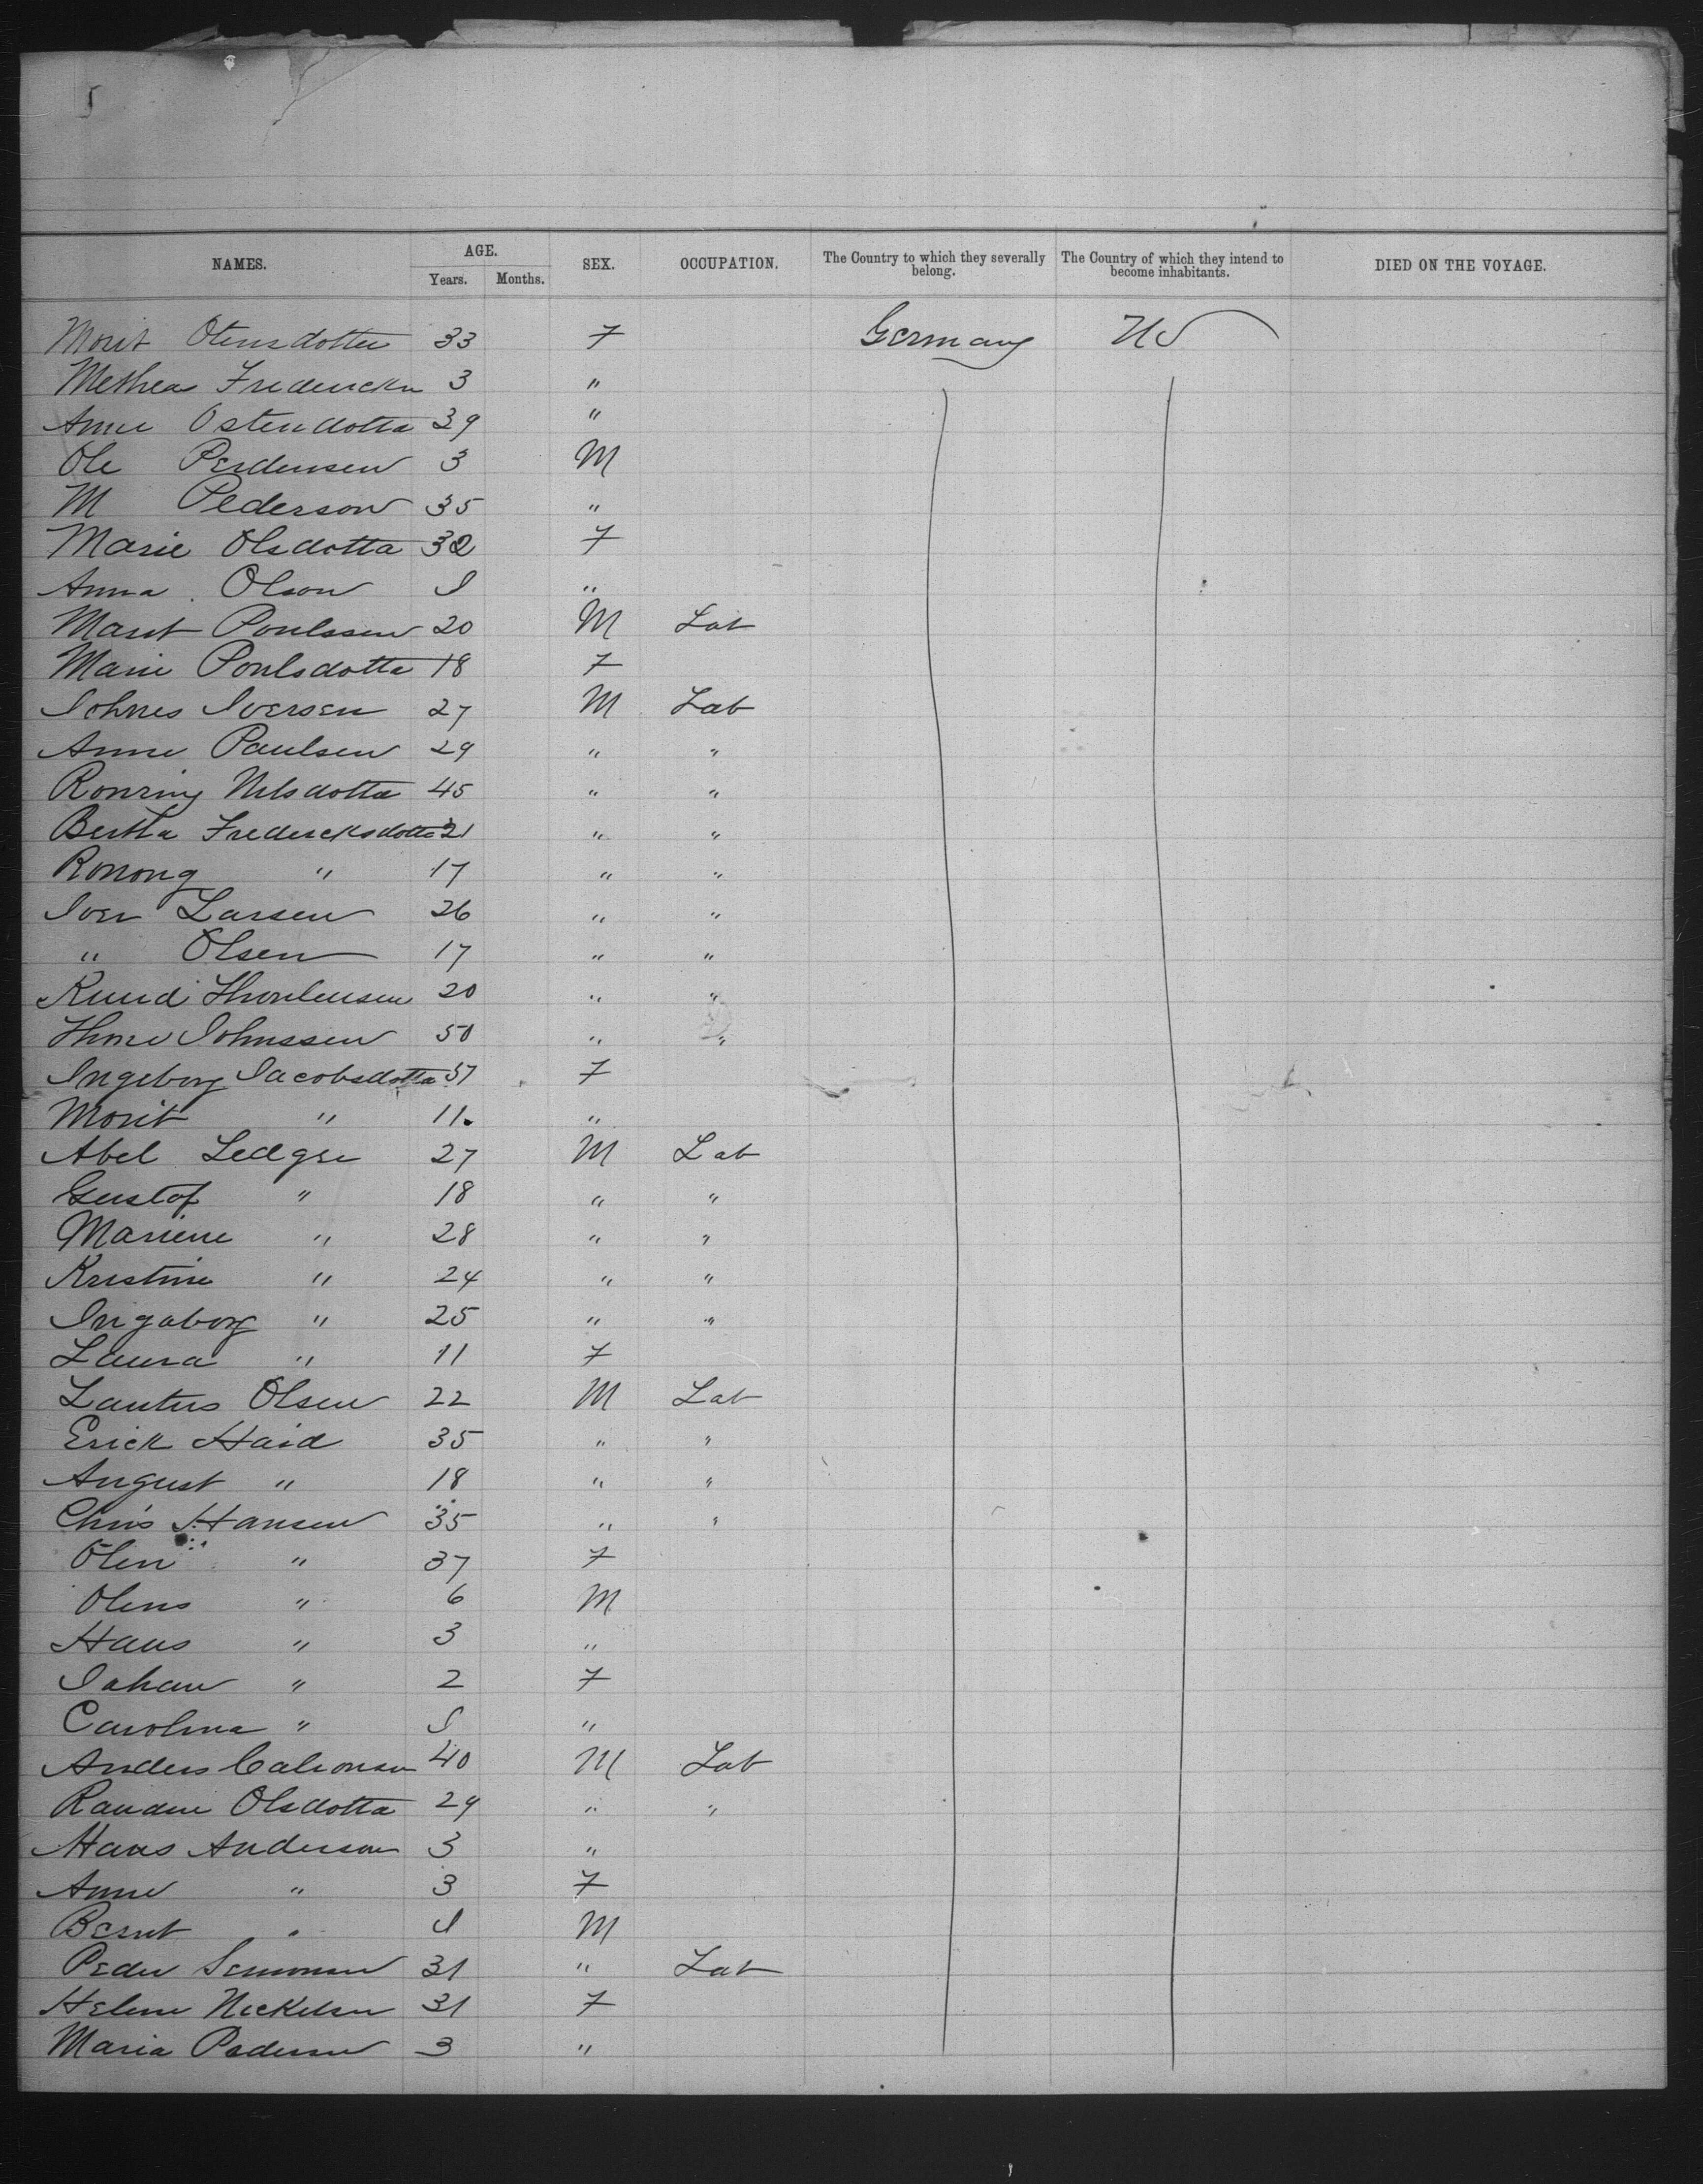 NAMES. AGE. Years. Months. SEX. OCCUPATION. The Country to which they severally belong. The Country of which they intend to become inhabitants. DIED ON THE VOYAGE.
Morit Otensdotter 33 F Germany US
Methea Frederickn 3 "
Anne Ostendotta 39 "
Ole Perdensen 3 M
M Pederson 35 "
Marie Olsdotta 32 F
Anna Olson I "
Marit Poulssen 20 M Lab
Marie Poulsdotta 18 F
Johnes Iversen 27 M Lab
Anne Paulsen 29 " "
Ronring Nilsdotta 45 " "
Bertha Fredericksdotta 21 " "
Ronong " 17 " "
Iver Larsen 26 " "
" Olsen 17 " "
Knud 20 " "
Thore Johnssen 50 " "
Ingeborg Jacobsdotta 57 F
Morit " 11 "
Abel Ledgre 27 M Lab
Gustof " 18 " "
Mariene " 28 " "
Kristine " 24 " "
Ingaborg " 25 " "
Laura " 11 F
Lautus Olsen 22 M Lab
Erick Haid 35 " "
August " 18 " "
Chris Hansen 35 " "
Olen " 37 F
Olens " 6 M
Hans " 3 "
Johan " 2 F
Carolina " I "
Anders 40 M Lab
Randine Olsdotta 29 " "
Hans Anderson 3 "
Anne " 3 F
Bernt " I M
Peder Semonsen 31 " Lab
Helene Nickelsen 31 F
Maria Pedersen 3 "